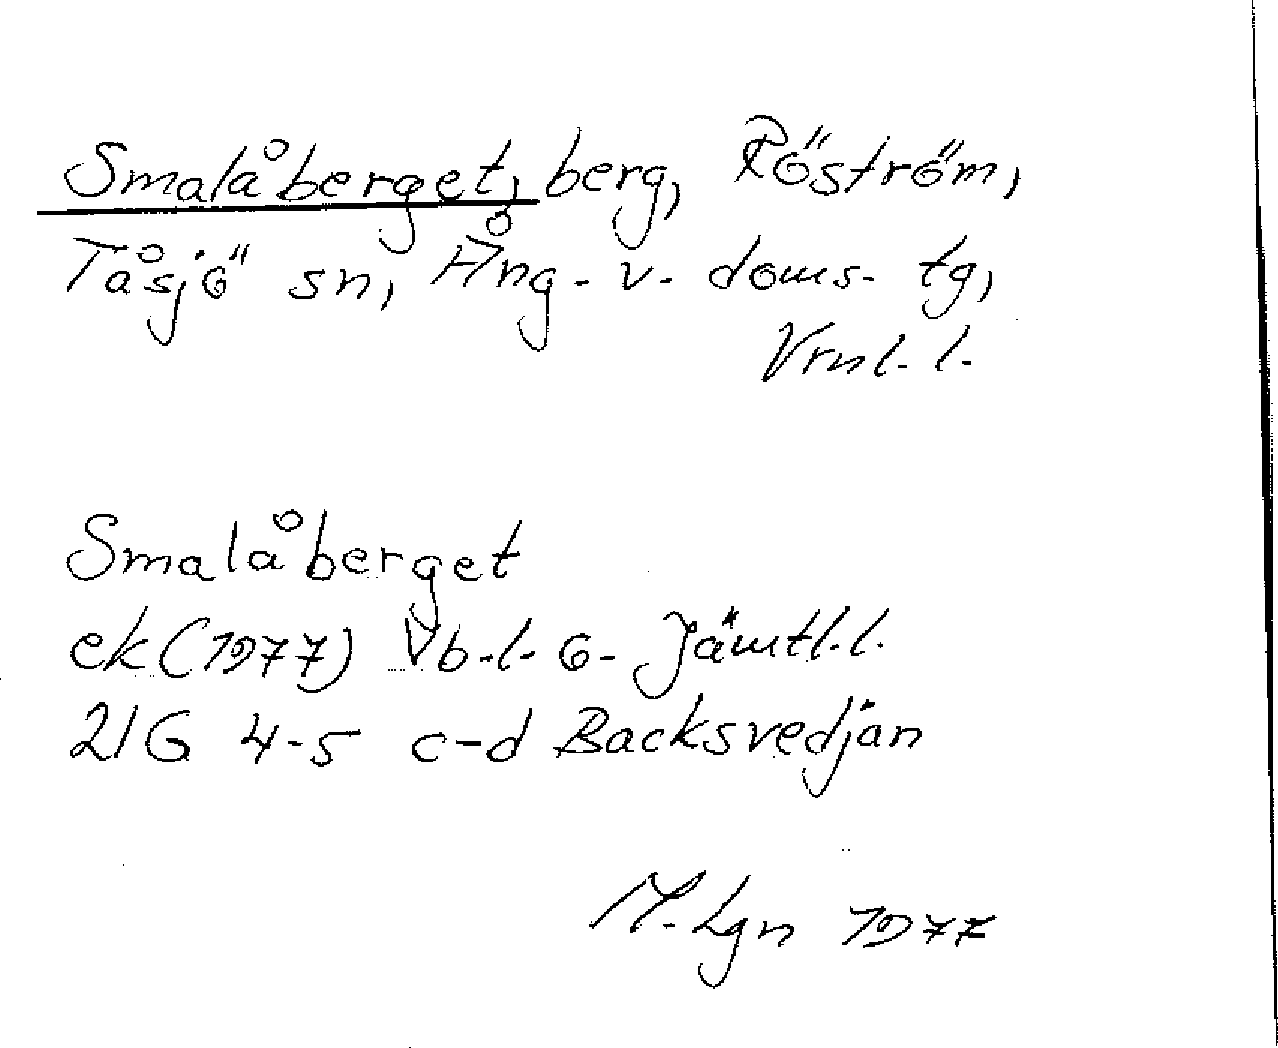 Smalåberget, berg, Röström,
Tåsjö sn, Ång. v. doms. tg,
Vrnl. l.
Smalåberget
ek (1977) Vb. l. o. Jämtl. l.
21G 4-5 c-d Backsvedjan
M. Lgn 1977